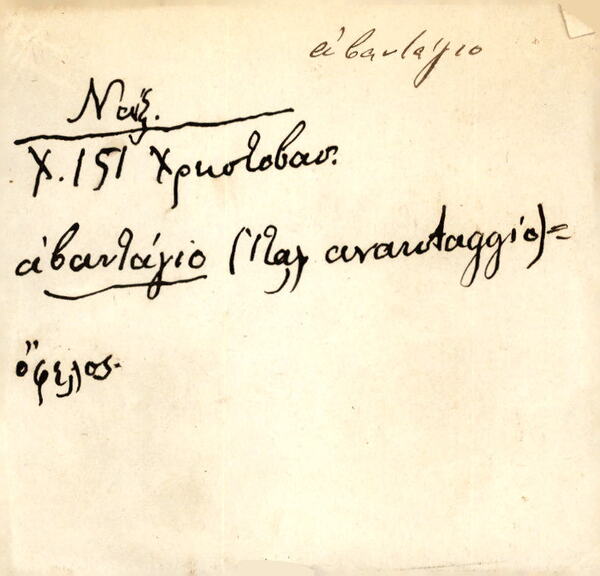 ἀβαντάγιο
Νάξ.
Χ. 151 Χρηστοβασ.
ἀβαντάγιο (Ἰταλ avantaggio)=
ὄφελλος.